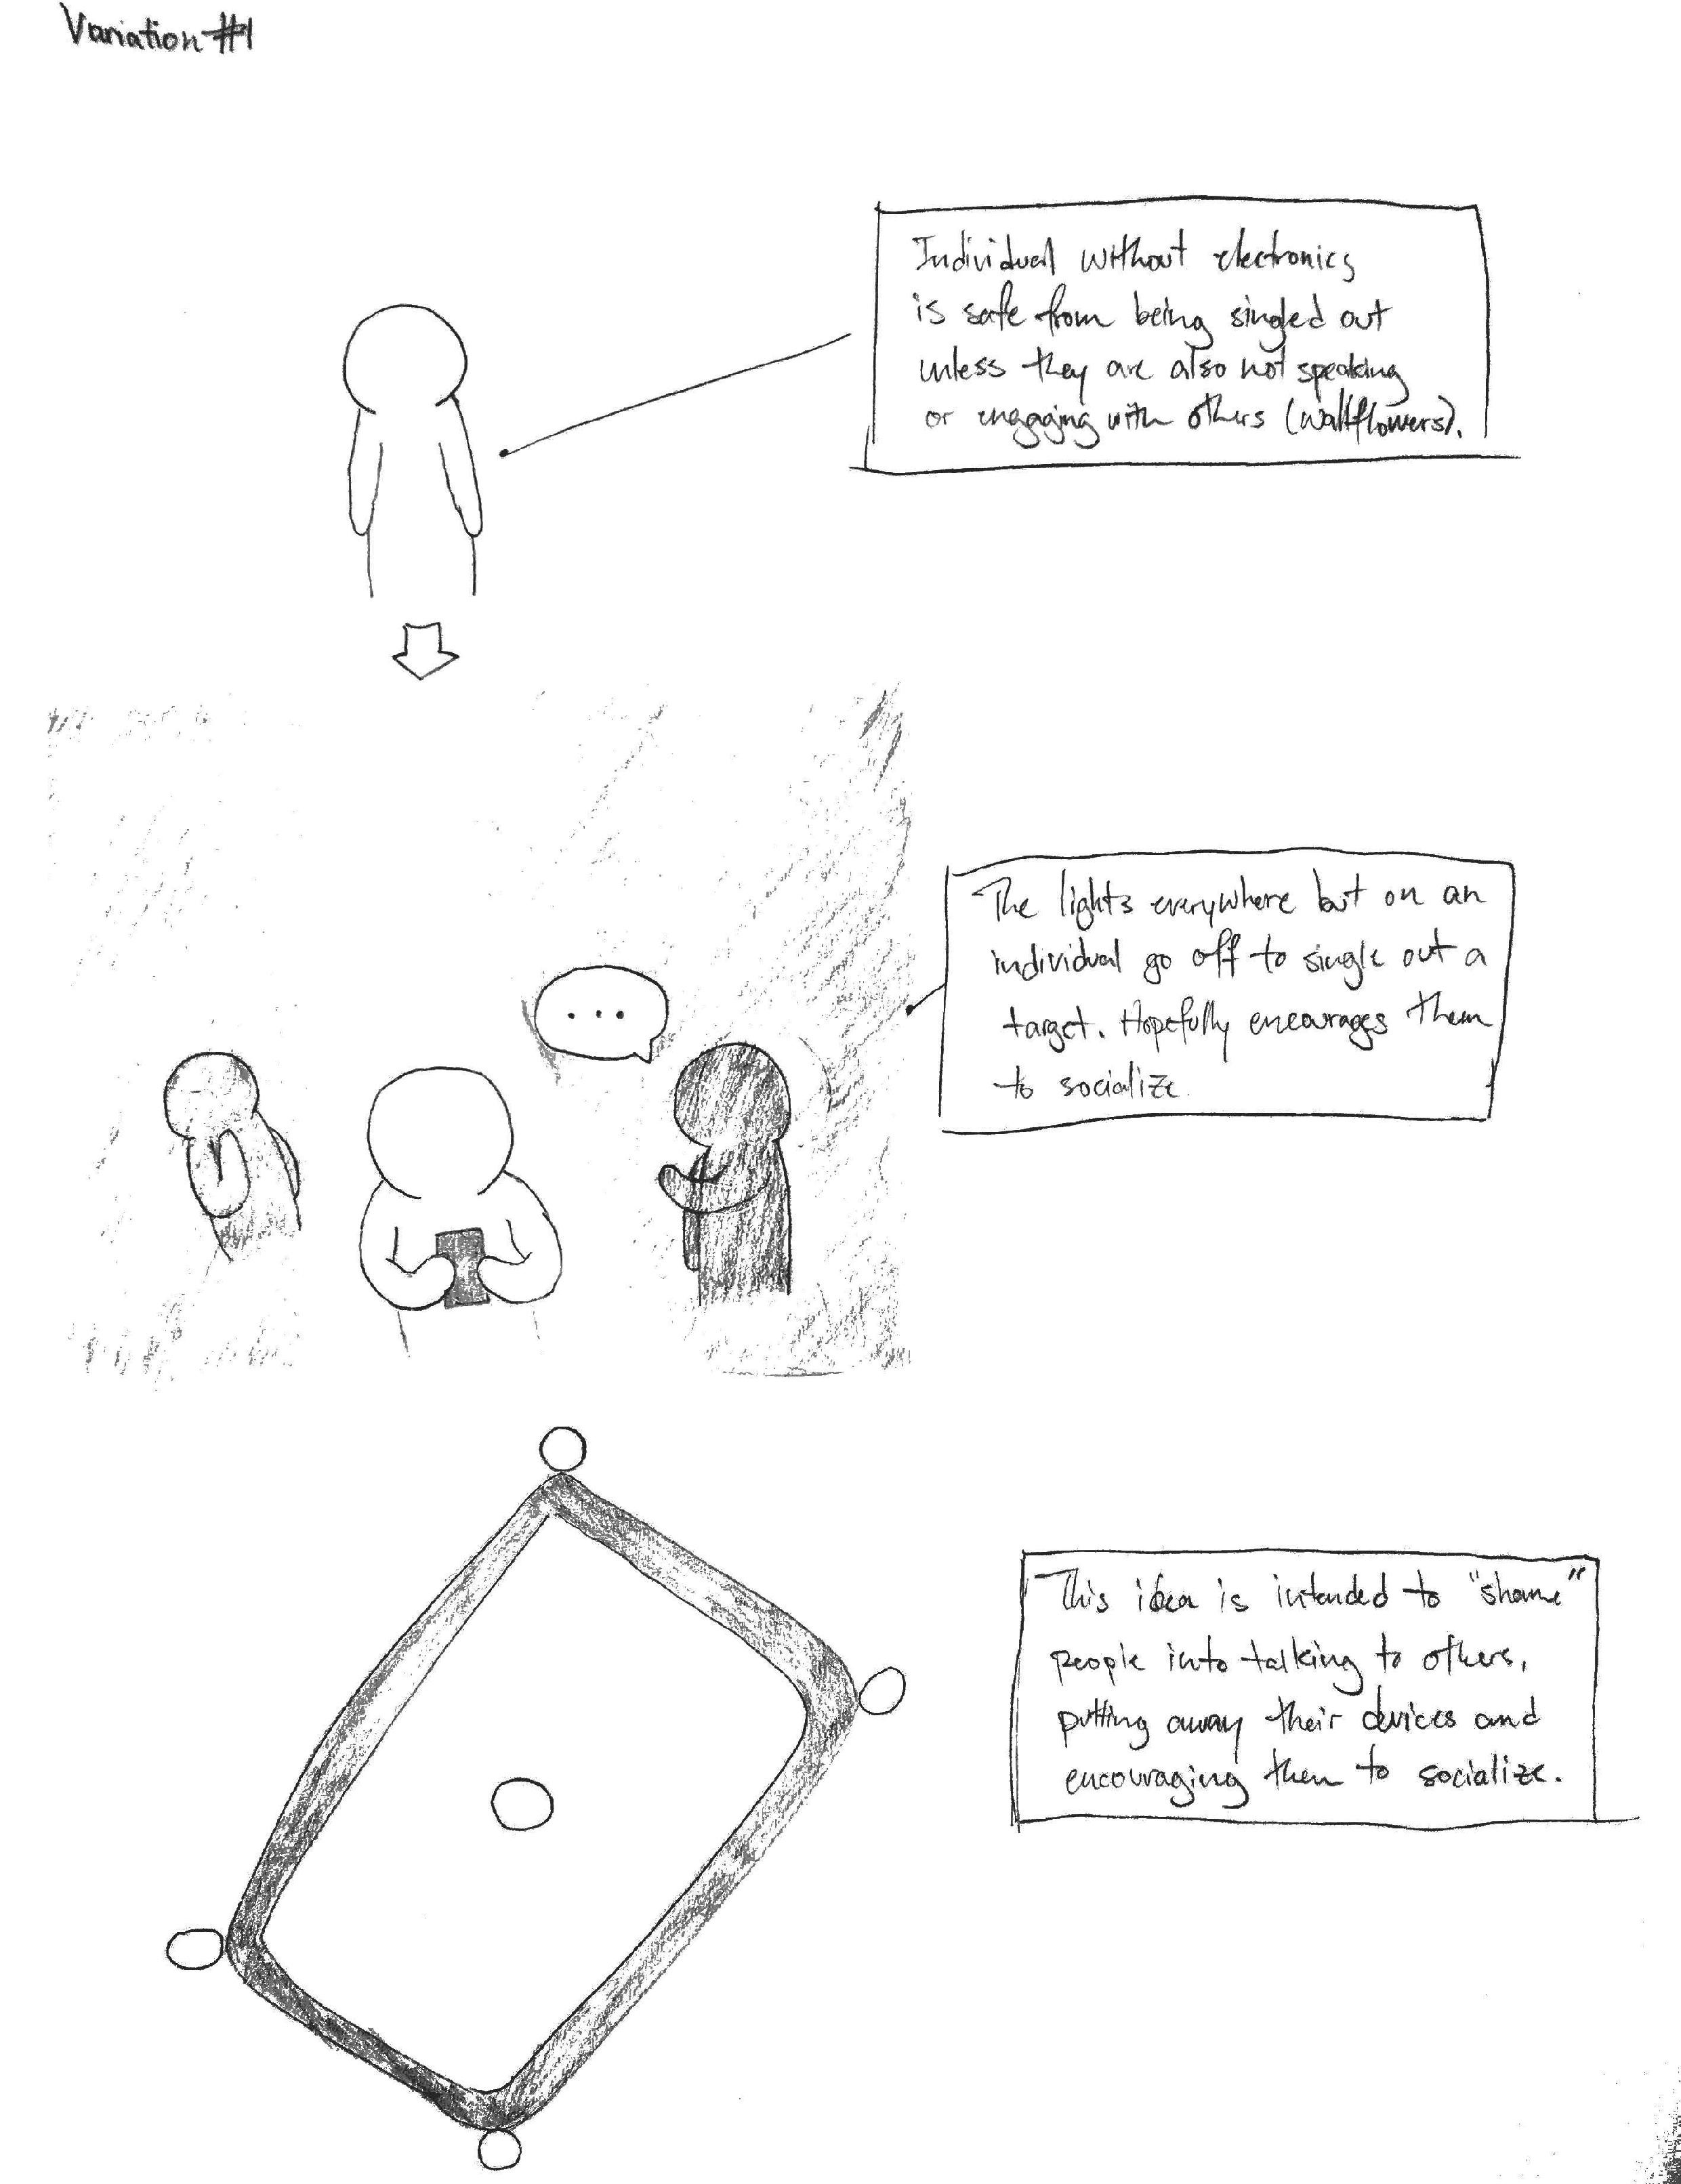 Variation #1
Individual without electronics
is safe from being singled out
unless they are also not speaking
or engaging with others (wallflowers).
The lights everywhere but on an
individual go off to single out a
target. Hopefully encourages them
to socialize.
...
This idea is intended to "shame"
people into talking to others,
putting away their devices and
encouraging them to socialize.